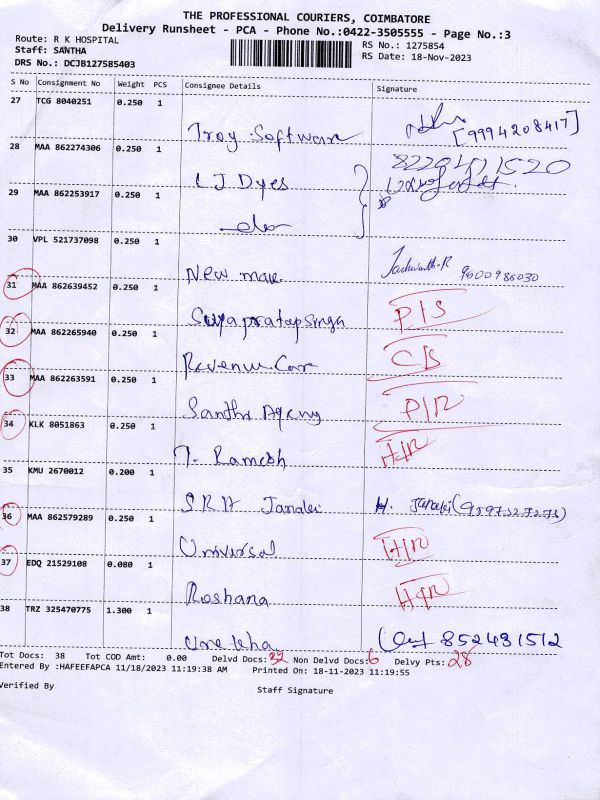 THE PROFESSIONAL COURIERS, COIMBATORE
Delivery Runsheet - PCA - Phone No.:0422-3505555 - Page No.:3
Route: R K HOSPITAL
Staff: SANTHA
DRS No.: DCJB127585403
RS No.: 1275854
RS Date: 18-Nov-2023
S No Consignment No Weight PCS Consignee Details Signature
27 TCG 8040251 0.250 1
Troy Software [9994208417]
28 MAA 862274306 0.250 1
L J Dyes
29 MAA 862253917 0.250 1
do
30 VPL 521737098 0.250 1
New
31 MAA 862639452 0.250 1
Suyapratap Singh P/S
32 MAA 862265940 0.250 1
Revenue Care C/S
33 MAA 862263591 0.250 1
Santhi Agency P/R
34 KLK 8051863 0.250 1
T. Ramesh H/R
35 KMU 2670012 0.200 1
S R H Janaki
36 MAA 862579289 0.250 1
Universal H/R
37 EDQ 21529108 0.080 1
Roshana
38 TRZ 325470775 1.300 1
852431512
Tot Docs: 38 Tot COD Amt: 0.00 Delvd Docs: 32 Non Delvd Docs: 6 Delvy Pts: 28
Entered By :HAFEEFAPCA 11/18/2023 11:19:38 AM Printed On: 18-11-2023 11:19:55
Verified By Staff Signature